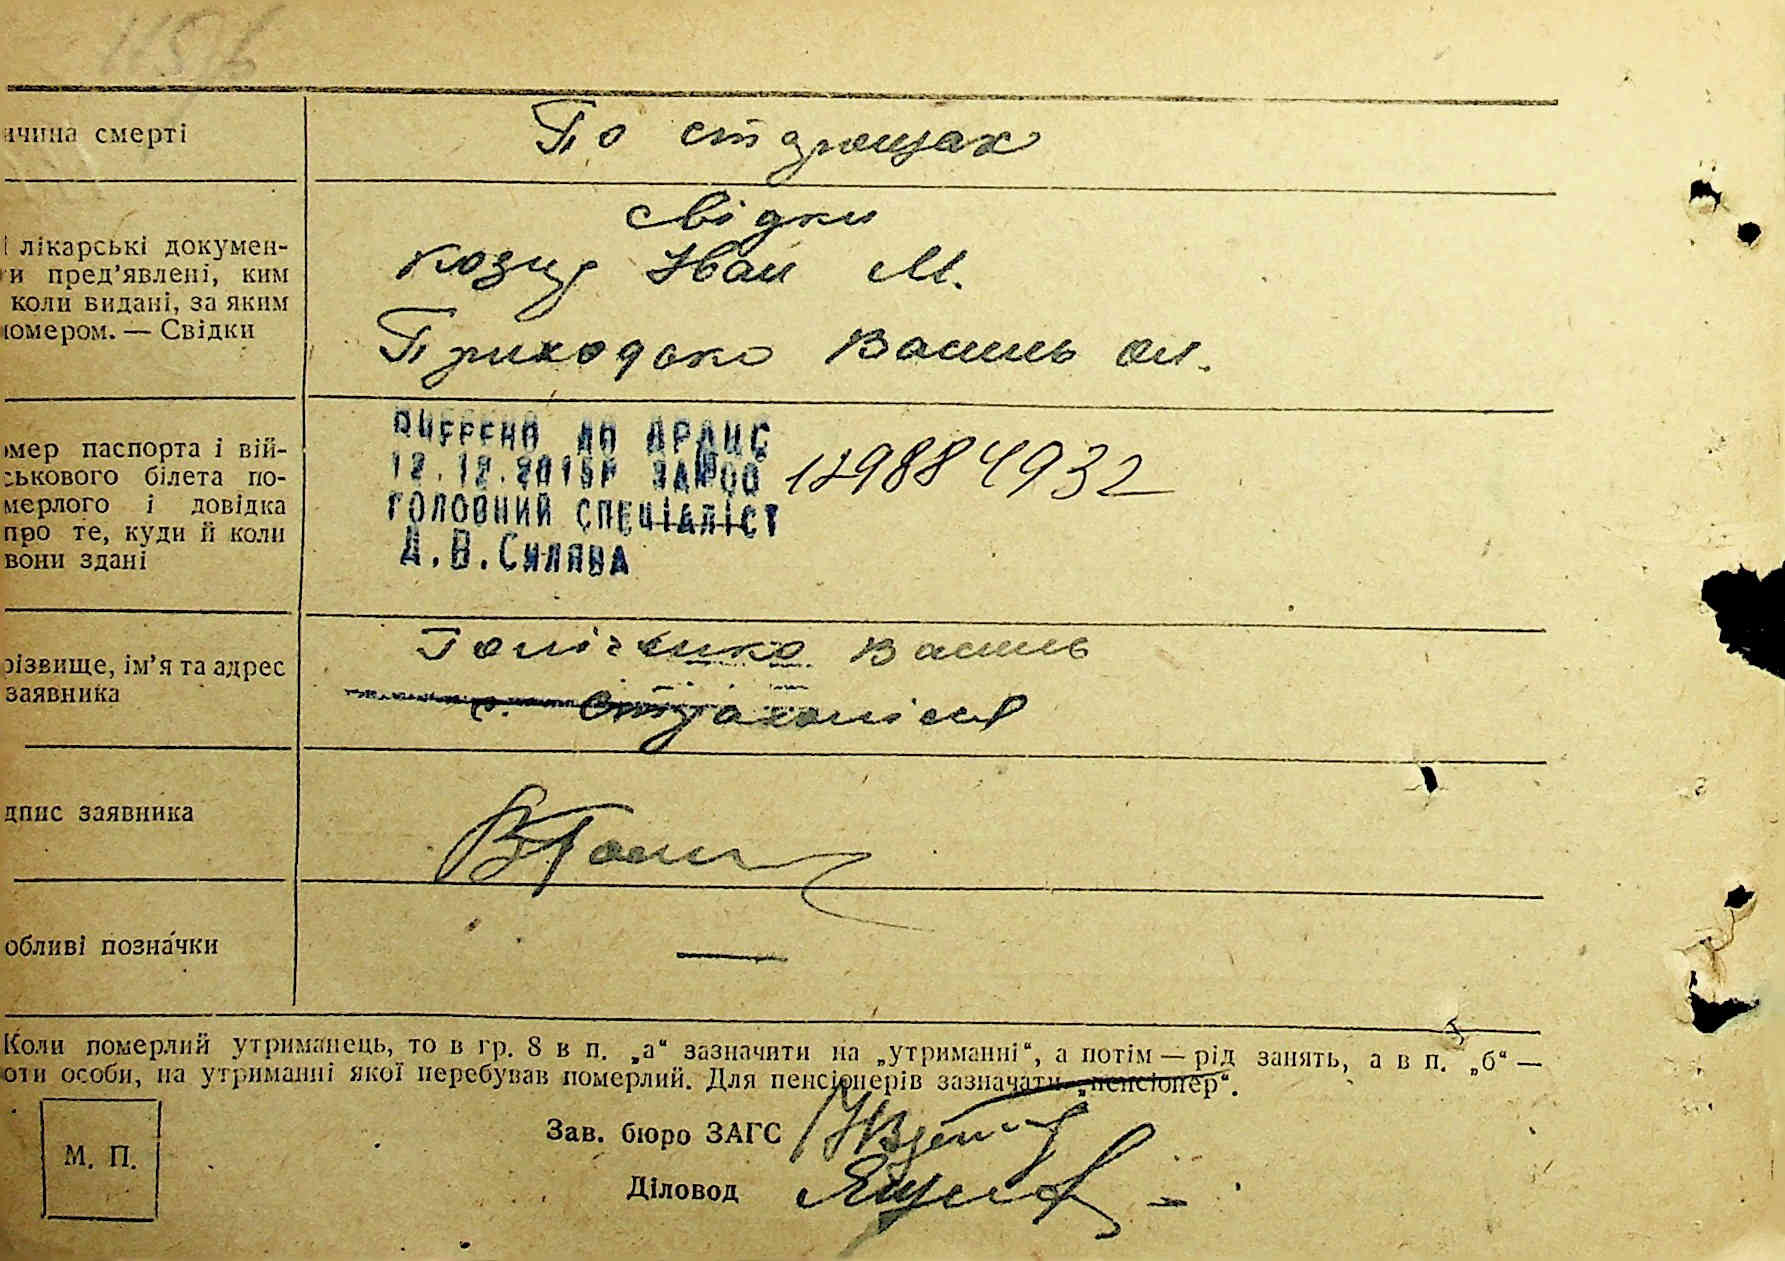 ичина смерті
По старощах
і лікарські докумен-
ти пред’явлені, ким
коли видані, за яким
номером. — Свідки
свідки
Козуб Іван М.
Приходько Василь
омер паспорта і вій-
ськового білета по-
мерлого і довідка
про те, куди й коли
вони здані
ВНЕСЕНО ДО ДРАЦС
12.12.2015Р ЗА№00 129884932
ГОЛОВНИЙ СПЕЦІАЛІСТ
Д.В.СИЛЯВА
різвище, ім’я та адрес
заявника
Василь
с. Страхолісся
дпис заявника
обливі позначки
—
Коли померлий утриманець, то в гр. 8 в п. „а“ зазначити на „утриманні“, а потім — рід занять, а в п. „б“ —
оти особи, на утриманні якої перебував померлий. Для пенсіонерів зазначати „пенсіонер“.
М. П.
Зав. бюро ЗАГС
Діловод